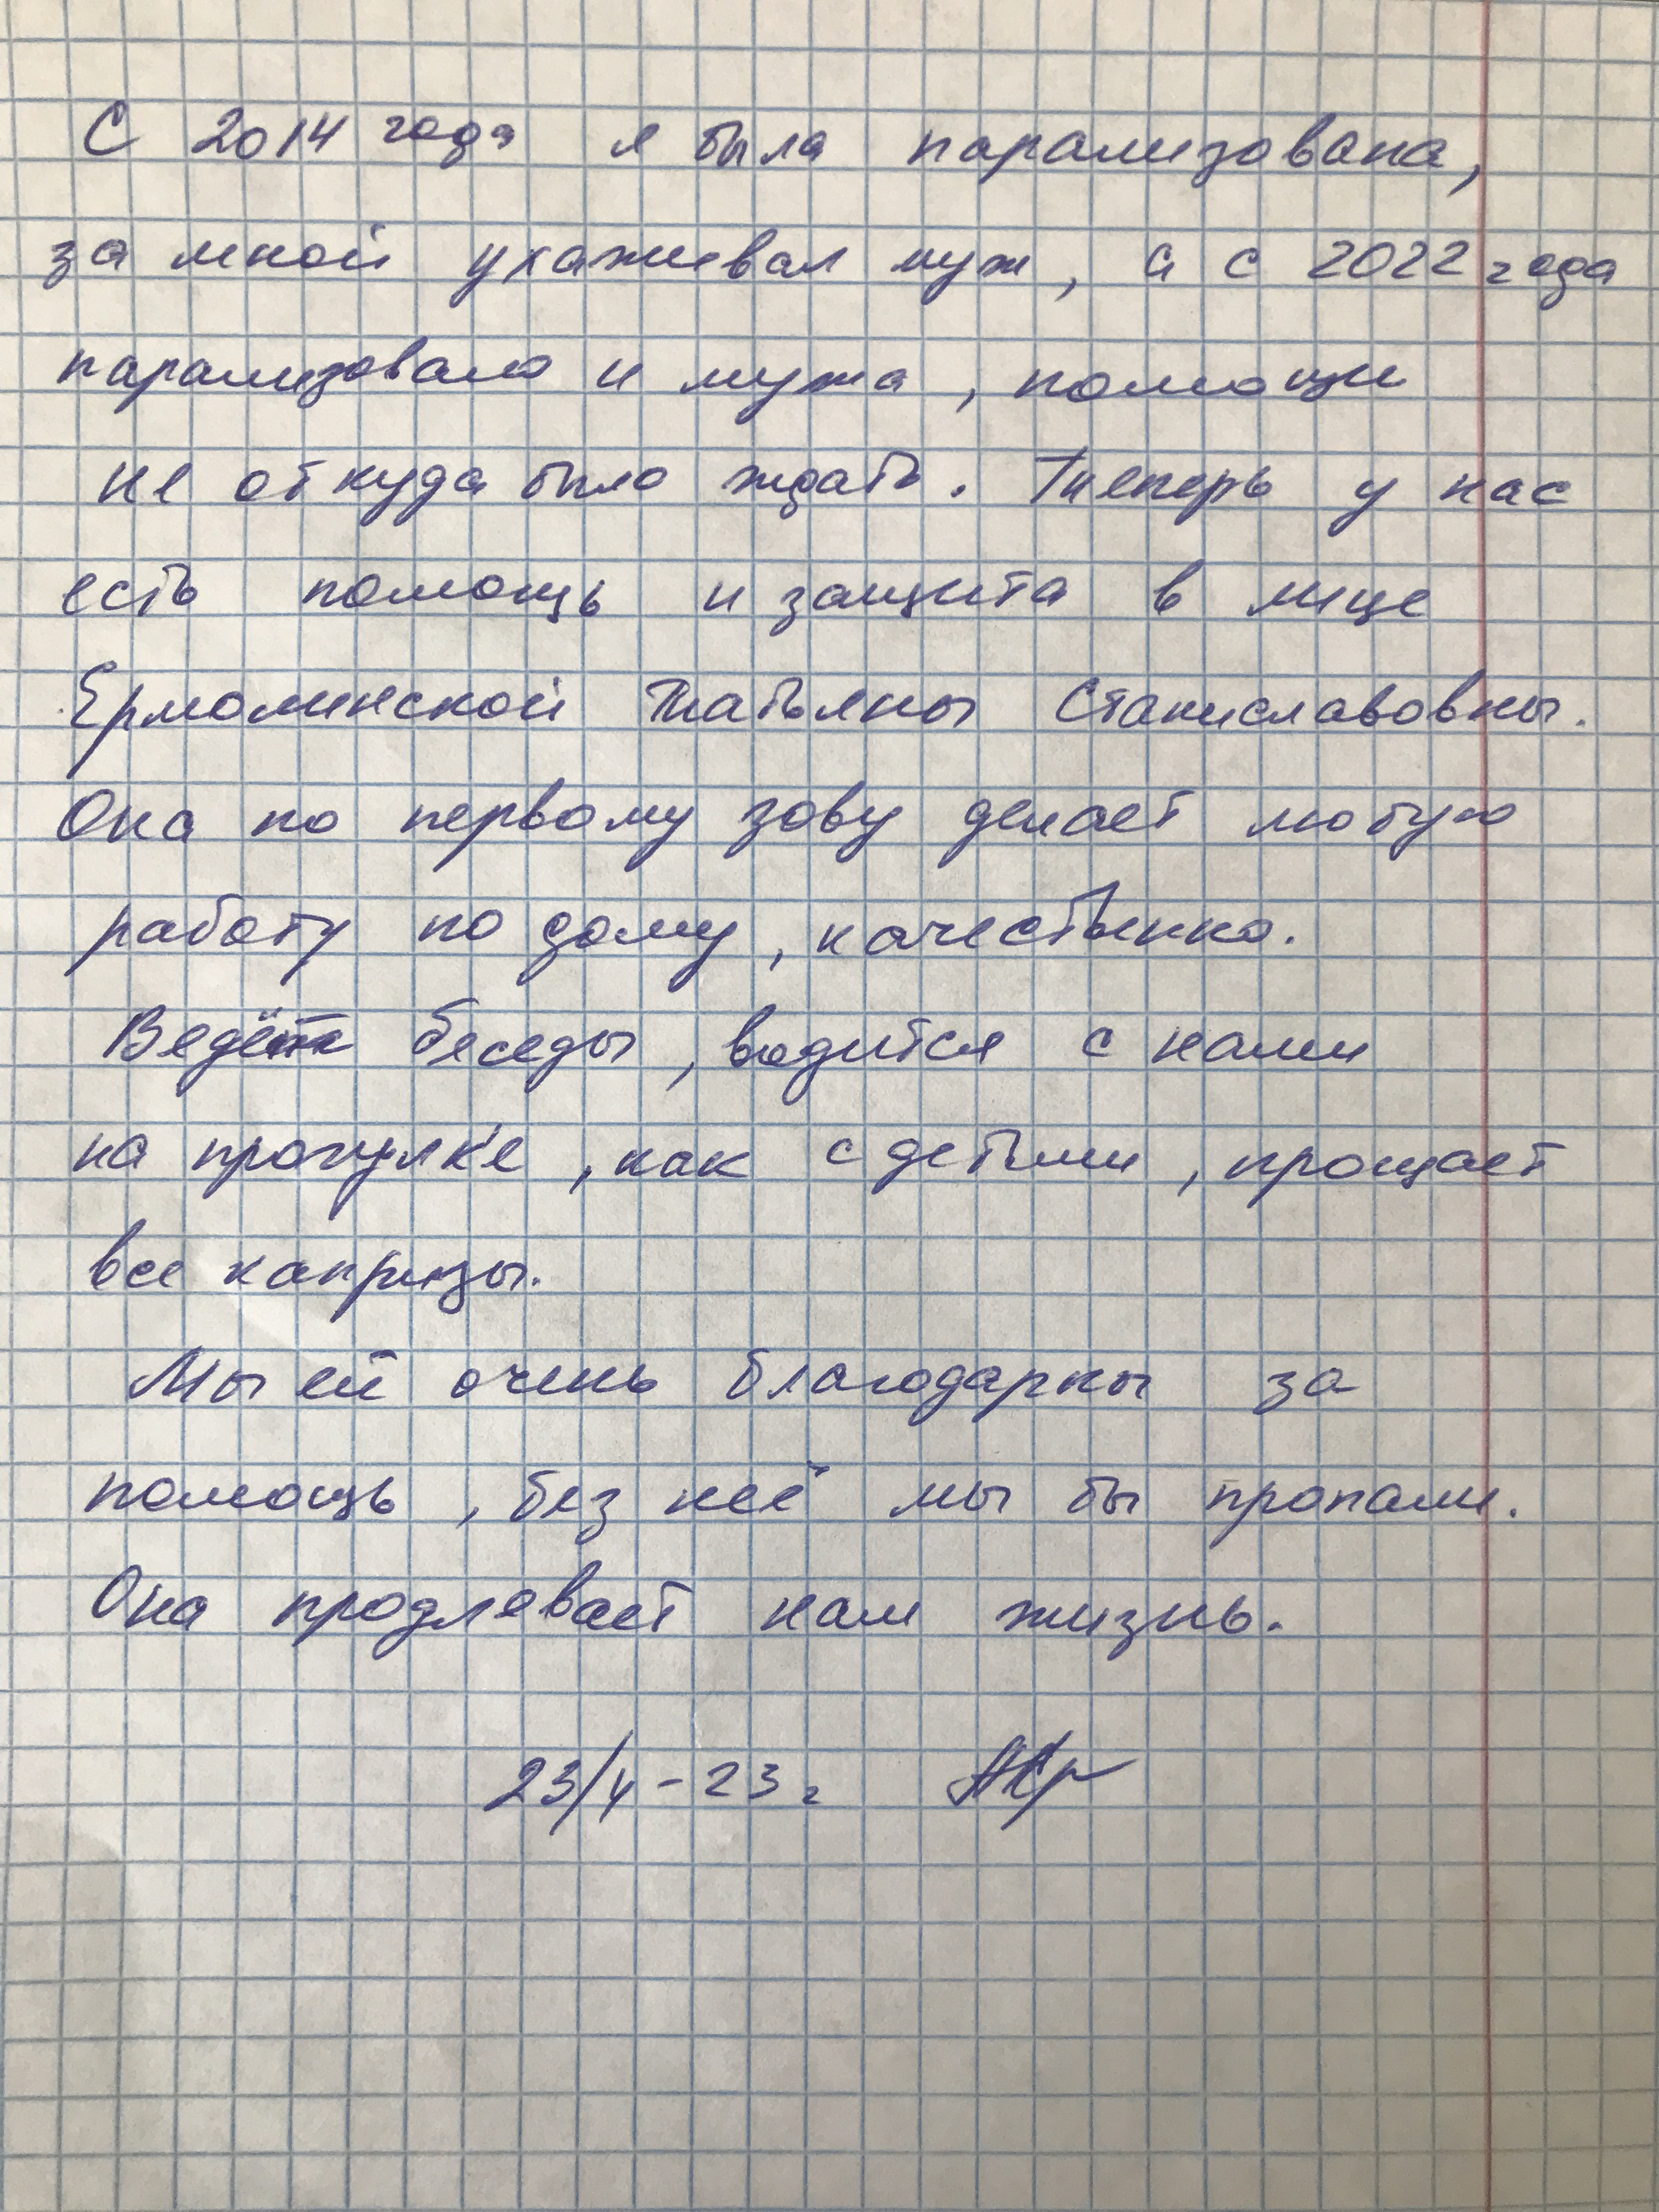 С 2014 года я была парализована,
за мной ухаживал муж, а с 2022 года
парализовало и мужа, помощи
не откуда было ждать. Теперь у нас
есть помощь и защита в лице
Ермолинской Татьяны Станиславовны.
Она по первому зову делает любую
работу по дому, качественно.
Ведёт беседы, водится с нами
на прогулке, как с детьми, прощает
все капризы.
Мы ей очень благодарны за
помощь, без неё мы бы пропали.
Она продлевает нам жизнь.
23/4-23г